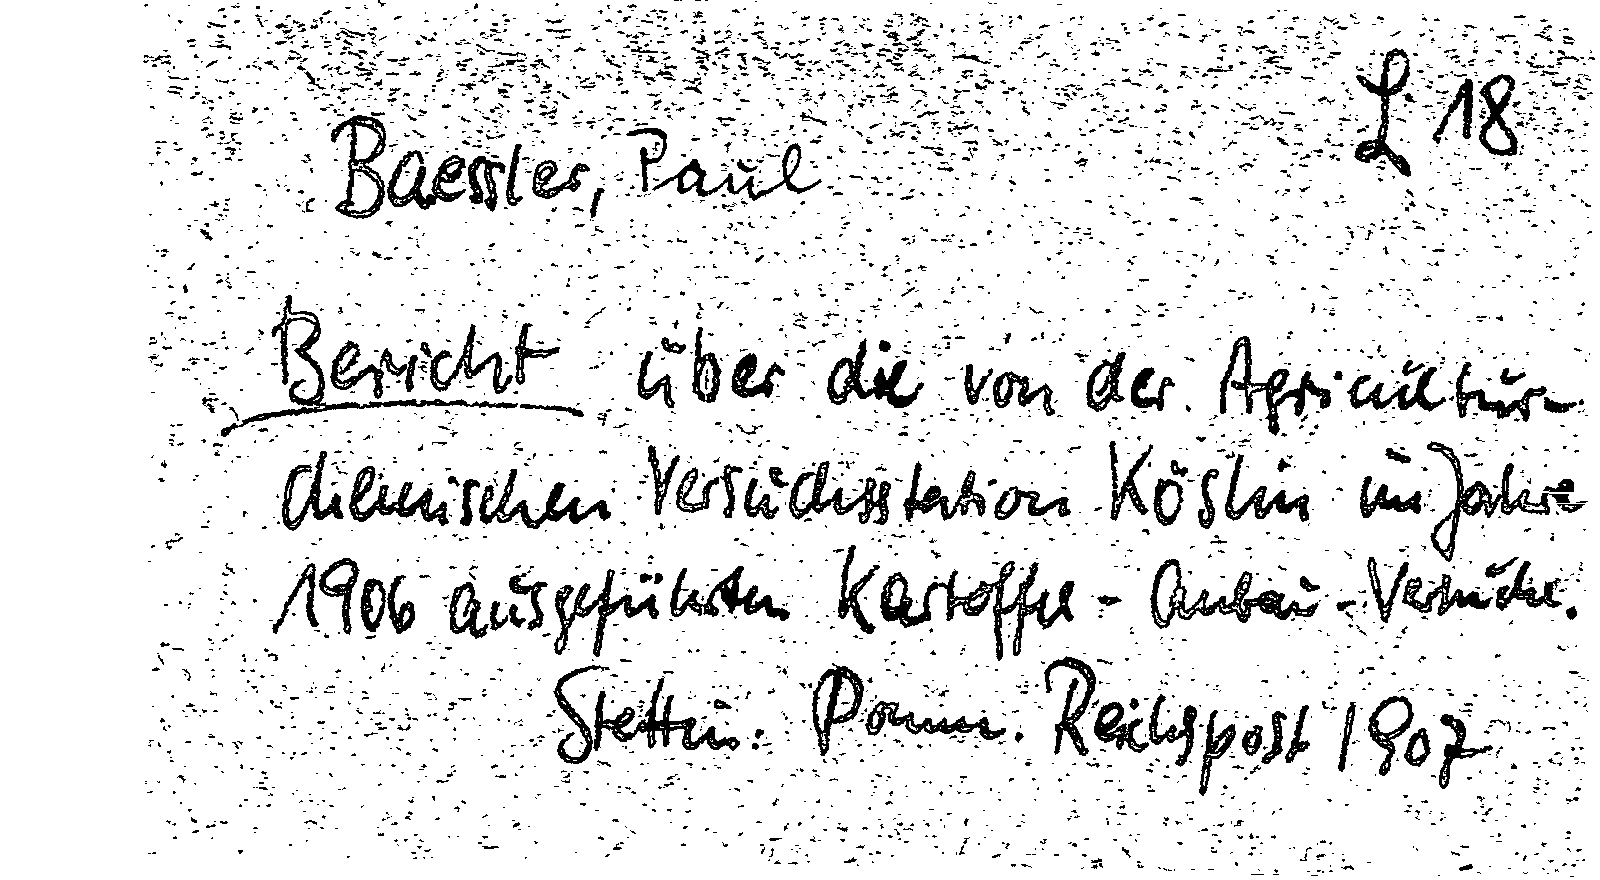 L 18
Baessler, Paul
Bericht über die von der Agricultur-
chemischen Versuchsstation Köslin im Jahre
1906 ausgeführten Kartoffel-Anbau-Versuche.
Stettin: Pomm. Reichspost 1907